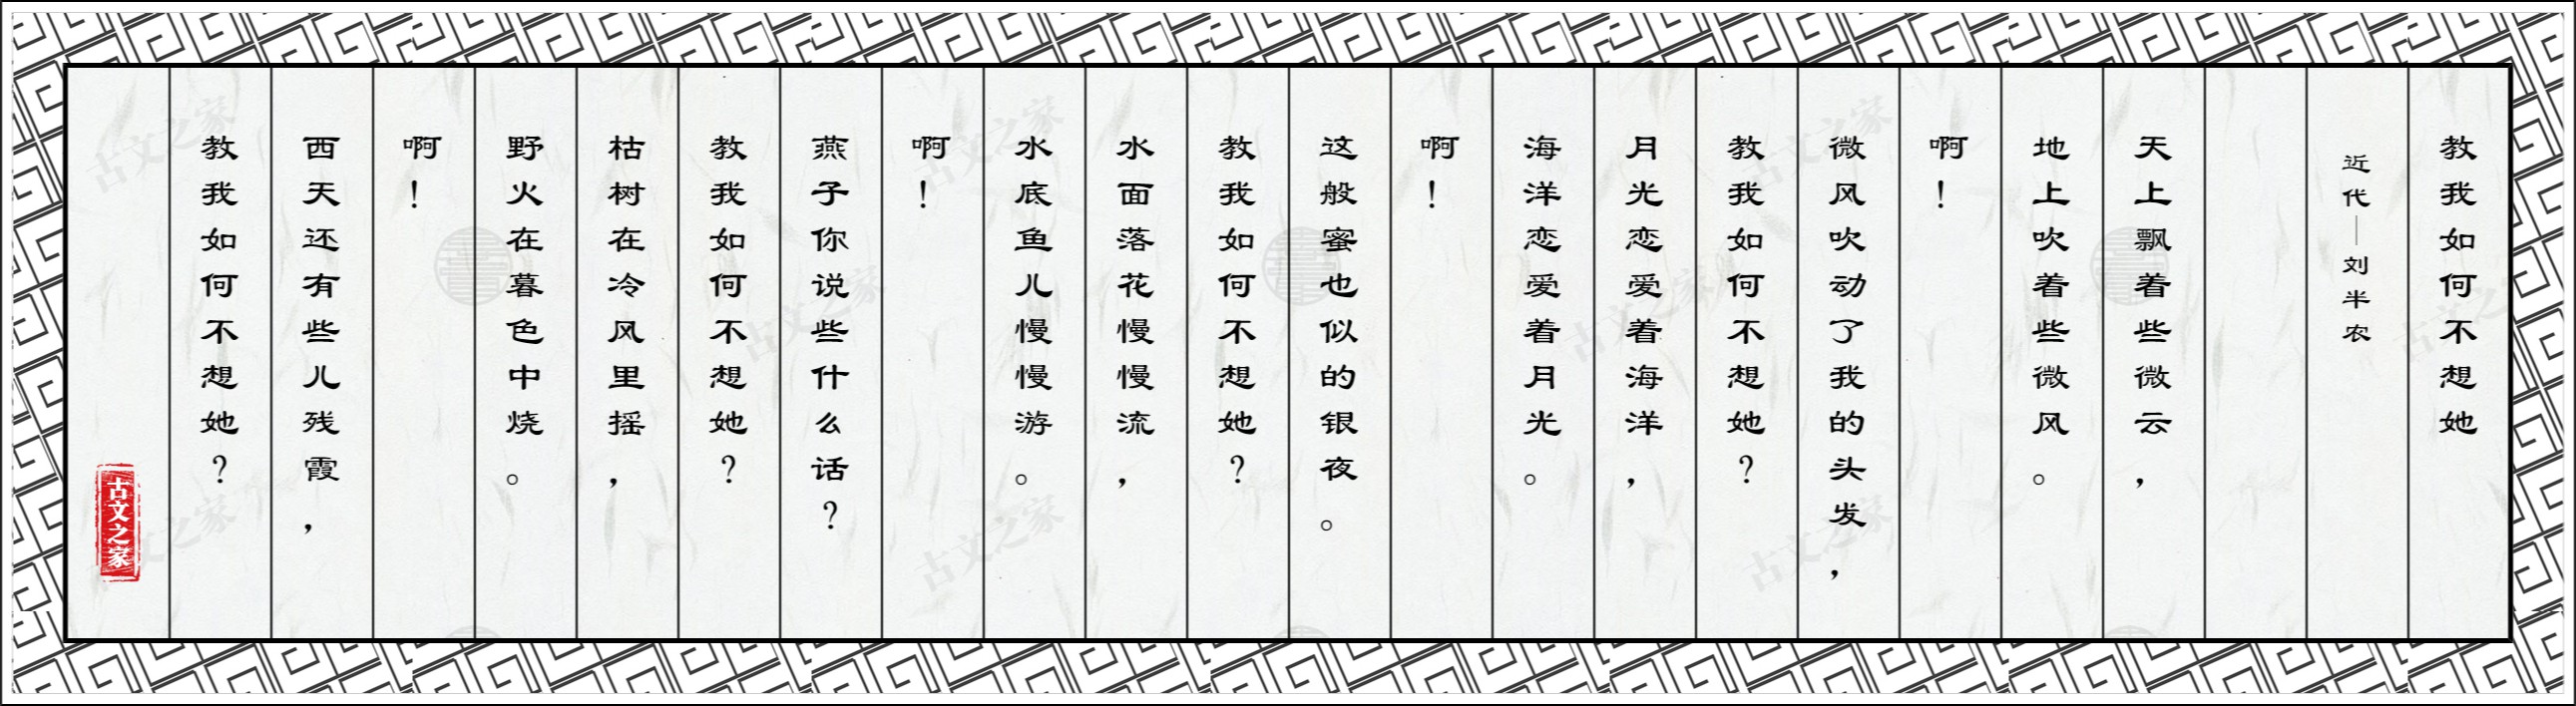 教我如何不想她
近代—刘半农
天上飘着些微云，
地上吹着些微风。
啊！
微风吹动了我的头发，
教我如何不想她？
月光恋爱着海洋，
海洋恋爱着月光。
啊！
这般蜜也似的银夜。
教我如何不想她？
水面落花慢慢流，
水底鱼儿慢慢游。
啊！
燕子你说些什么话？
教我如何不想她？
枯树在冷风里摇，
野火在暮色中烧。
啊！
西天还有些儿残霞，
教我如何不想她？
古文之家